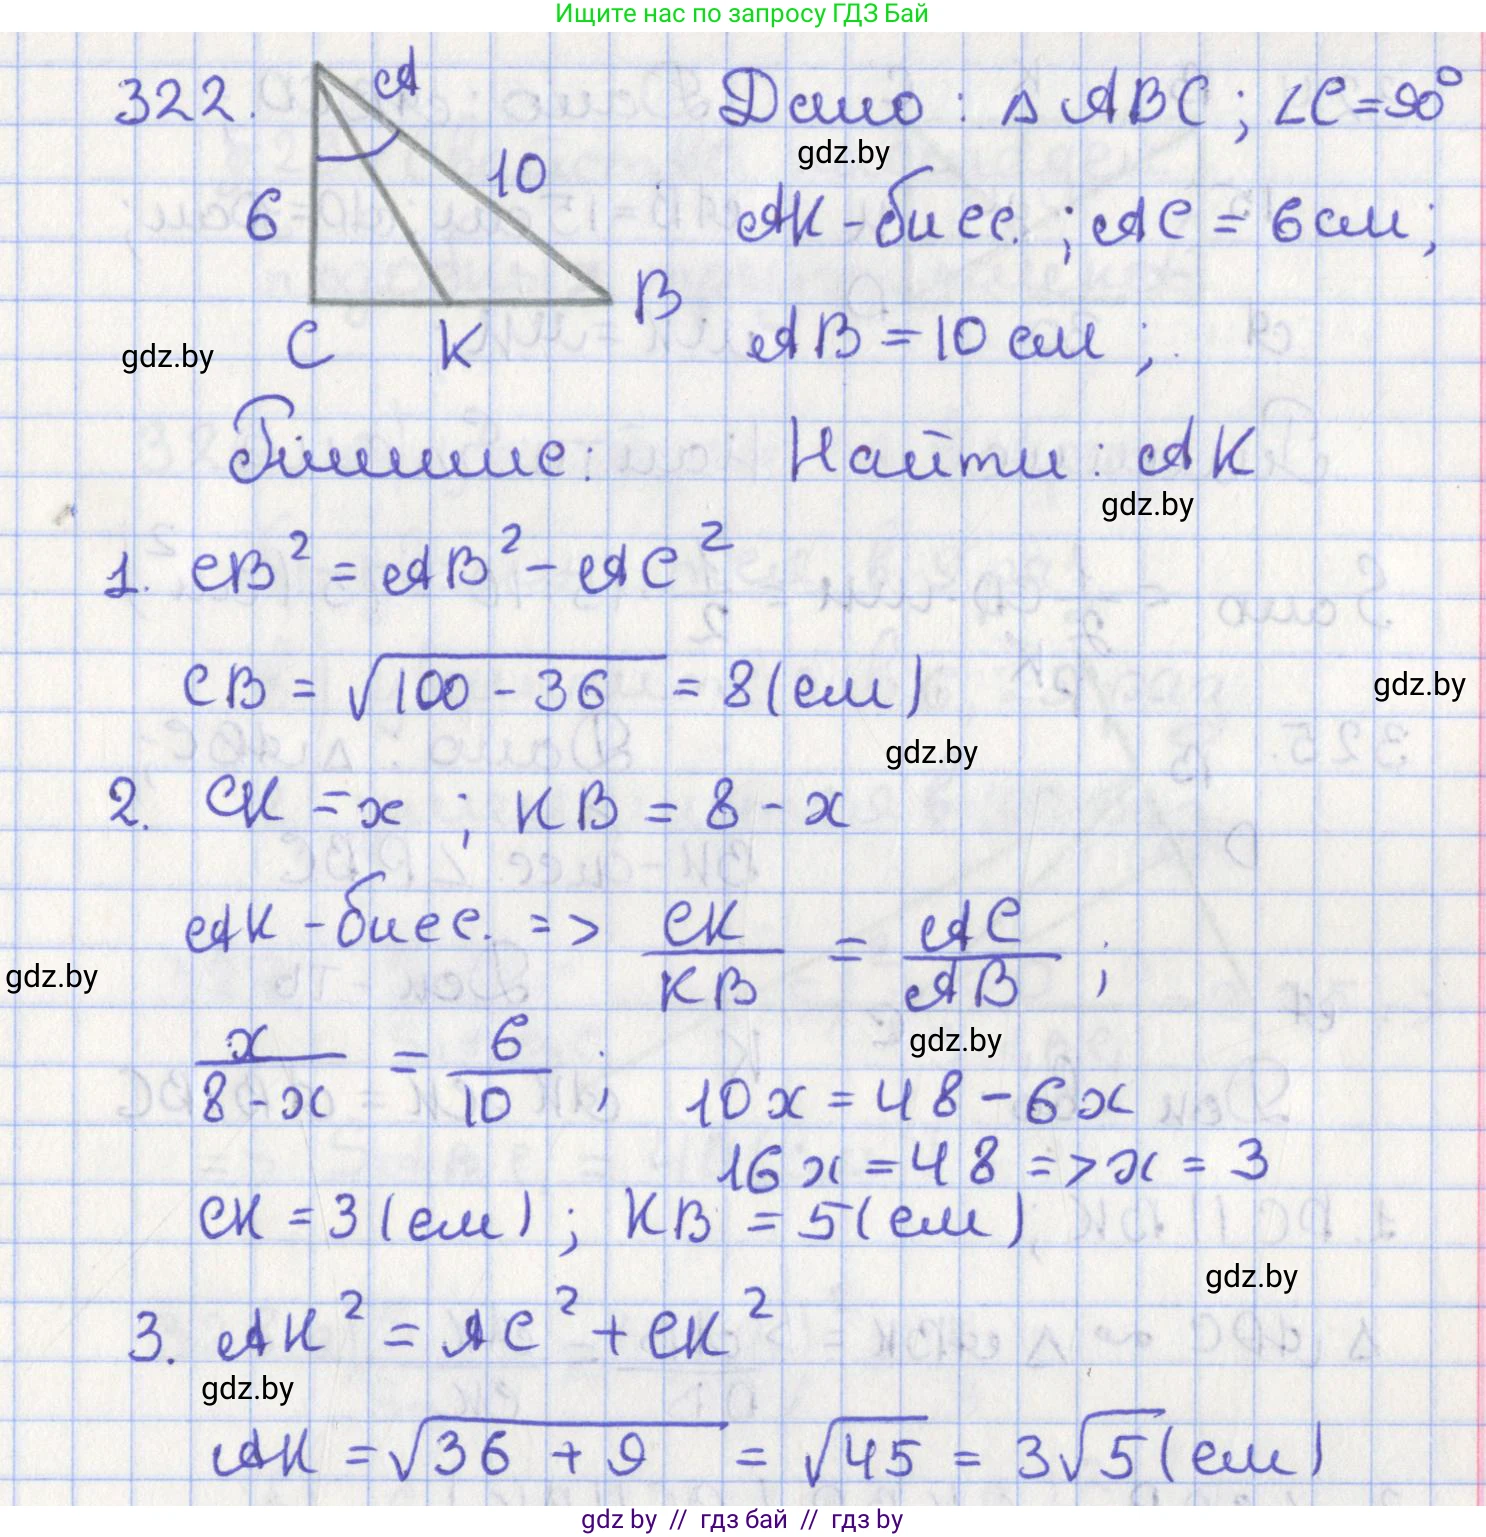 Ищите нас по запросу ГДЗ Бай
322. A Дано : △ ABC ; ∠C = 90°
gdz.by
6 10 AK - бисс. ; AC = 6 см ;
B
gdz.by C K AB = 10 см ;
Решение: Найти : AK
gdz.by
1. CB² = AB² - AC²
CB = √100 - 36 = 8 (см)
gdz.by
gdz.by
2. CK = x ; KB = 8 - x
AK - бисс. => CK/KB = AC/AB ;
gdz.by
gdz.by
x/8-x = 6/10 ; 10x = 48 - 6x
16x = 48 => x = 3
CK = 3 (см) ; KB = 5 (см)
gdz.by
3. AK² = AC² + CK²
gdz.by
AK = √36 + 9 = √45 = 3√5 (см)
gdz.by // гдз бай // гдз by